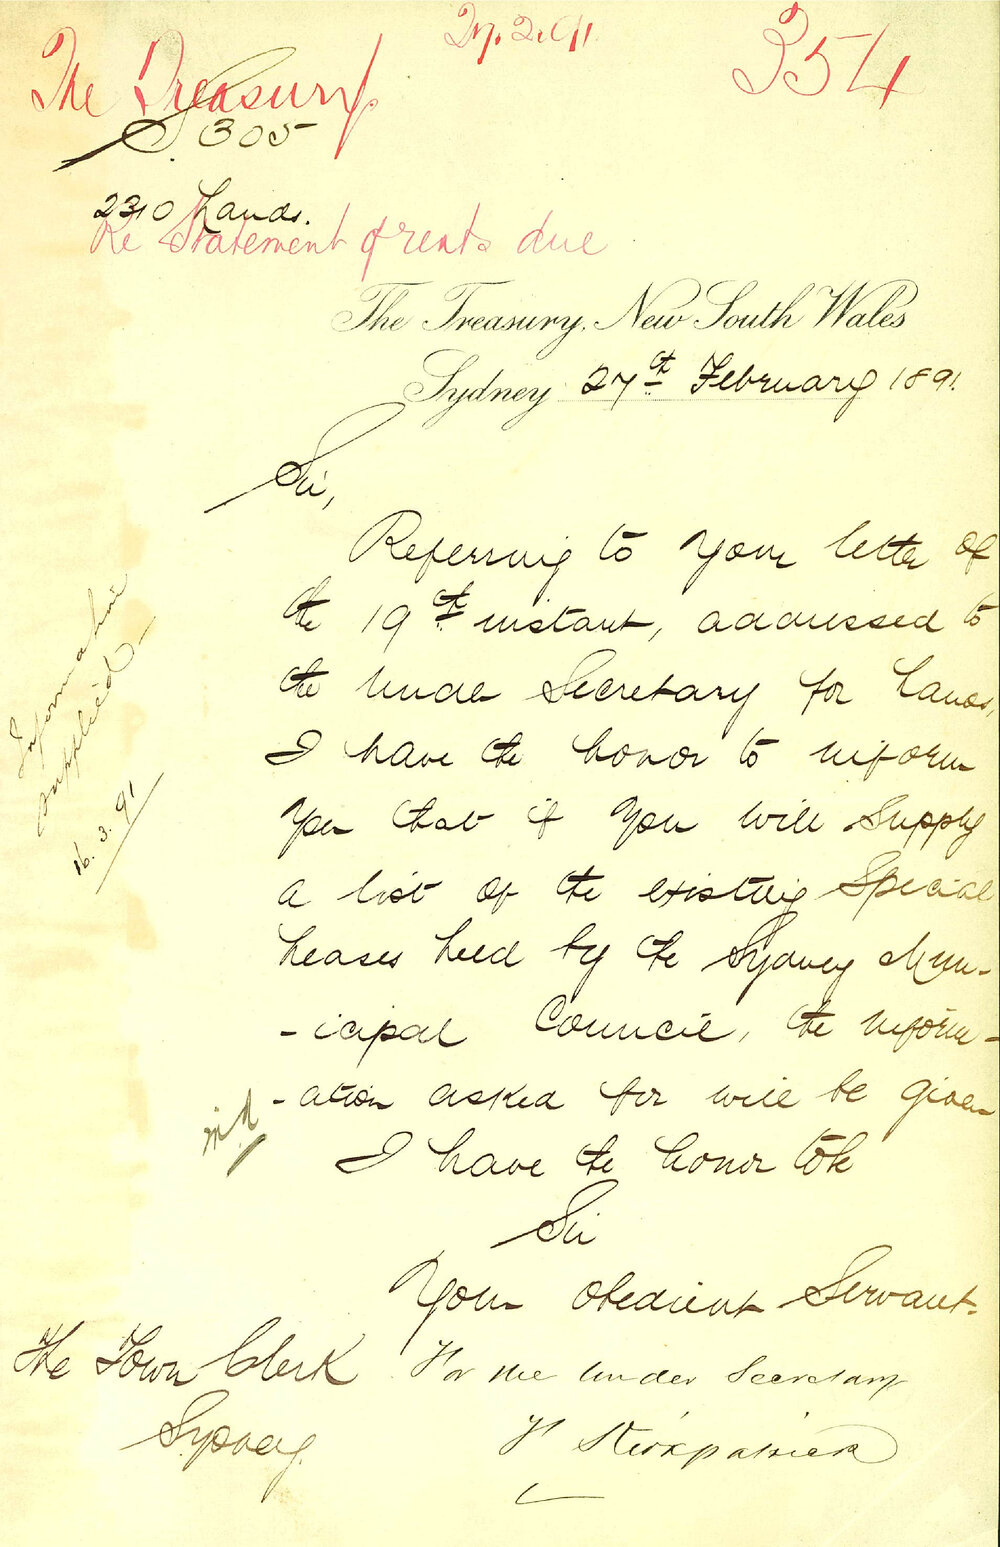 27.2.91.
354
The Treasury.
S. 305
2310 Lands.
Re Statement of rents due
The Treasury, New South Wales
Sydney 27th February 1891.
Sir,
Referring to your letter of
the 19th instant, addressed to
the Under Secretary for Lands,
I have the honor to inform
you that if you will supply
a list of the existing Special
Leases held by the Sydney Mun-
-icipal Council, the inform-
-ation asked for will be given
I have the honor to be
Sir
Your Obedient Servant.
For the Under Secretary
Kirkpatrick
The Town Clerk
Sydney.
Information
supplied
16.3.91